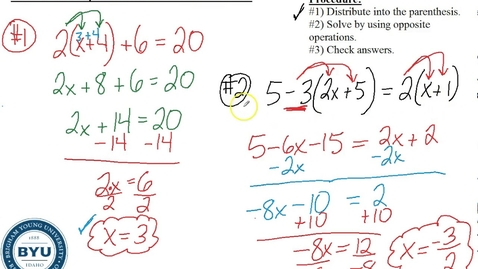 Procedure:
#1) Distribute into the parenthesis.
#2) Solve by using opposite
operations.
#3) Check answers.
#1
3+4
2(x+4)+6=20
2x+8+6=20
2x+14=20
-14 -14
2·x=6
2 2
x=3
#2
5-3(2x+5)=2(x+1)
5-6x-15=2x+2
-2x -2x
-8x-10=2
+10 +10
-8x=12
-8
x=-3
2
BRIGHAM YOUNG UNIVERSITY
BYU
IDAHO